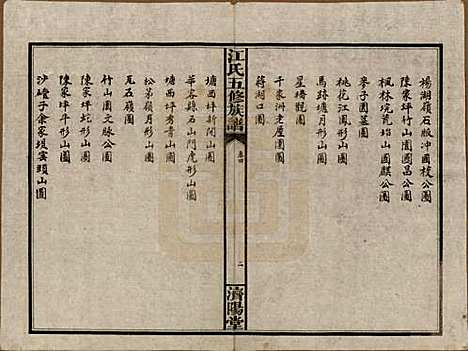 楊湖嶺石版冲國楨公圖
陳家坪竹山園國昌公圖
楓林坑瓷坮山圖麒公圖
麥子園墓圖
桃花江鳳形山圖
馬路塘月形山圖
星壔觀圖
千家洲老屋圍圖
蒋湖口圖
江氏五修族譜
卷四
二
濟陽堂
塘西坪新閒山圖
華容縣石山門虎形山圖
塘西坪秀書山圖
松茅嶺月形山圖
瓦石嶺圖
竹山園文脉公圖
陳家坪蛇形山圖
陳家坪斗形山圖
沙磴子余家垻雲頭山圖